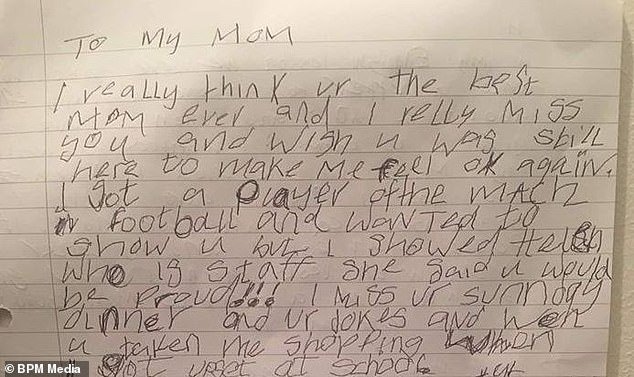 To My MOM
I really think ur the best
MOM ever and I relly Miss
you and wish u was still
here to make Me feel ok again.
I got a player ofthe mach
in football and wanted to
show u but I showed Helen
who is staff she said u would
be proud!!! I Miss ur sunndgy
dinner and ur jokes and wen
u taken me shopping when
I got upset at school
BPM Media